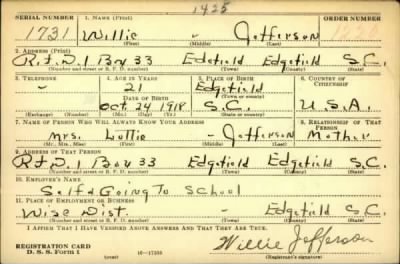 1425
SERIAL NUMBER 1. NAME (Print) ORDER NUMBER
1731 Willie - Jefferson
(First) (Middle) (Last)
2. ADDRESS (Print)
R.F.D. 1 Box 33 Edgefield Edgefield S.C.
(Number and street or R. F. D. number) (Town) (County) (State)
3. TELEPHONE 4. AGE IN YEARS 5. PLACE OF BIRTH 6. COUNTRY OF CITIZENSHIP
- 21 Edgefield
DATE OF BIRTH (Town or county)
Oct. 24 1918 S.C. U.S.A.
(Exchange) (Number) (Mo.) (Day) (Yr.) (State or country)
7. NAME OF PERSON WHO WILL ALWAYS KNOW YOUR ADDRESS 8. RELATIONSHIP OF THAT PERSON
Mrs. Lullie - Jefferson Mother
(Mr., Mrs., Miss) (First) (Middle) (Last)
9. ADDRESS OF THAT PERSON
R.F.D. 1 Box 33 Edgefield Edgefield S.C.
(Number and street or R. F. D. number) (Town) (County) (State)
10. EMPLOYER'S NAME
Self & Going To School
11. PLACE OF EMPLOYMENT OR BUSINESS
Wise Dist. - Edgefield S.C.
(Number and street or R. F. D. number) (Town) (County) (State)
I AFFIRM THAT I HAVE VERIFIED ABOVE ANSWERS AND THAT THEY ARE TRUE.
REGISTRATION CARD Willie Jefferson
D. S. S. Form 1 (over) (Registrant's signature)